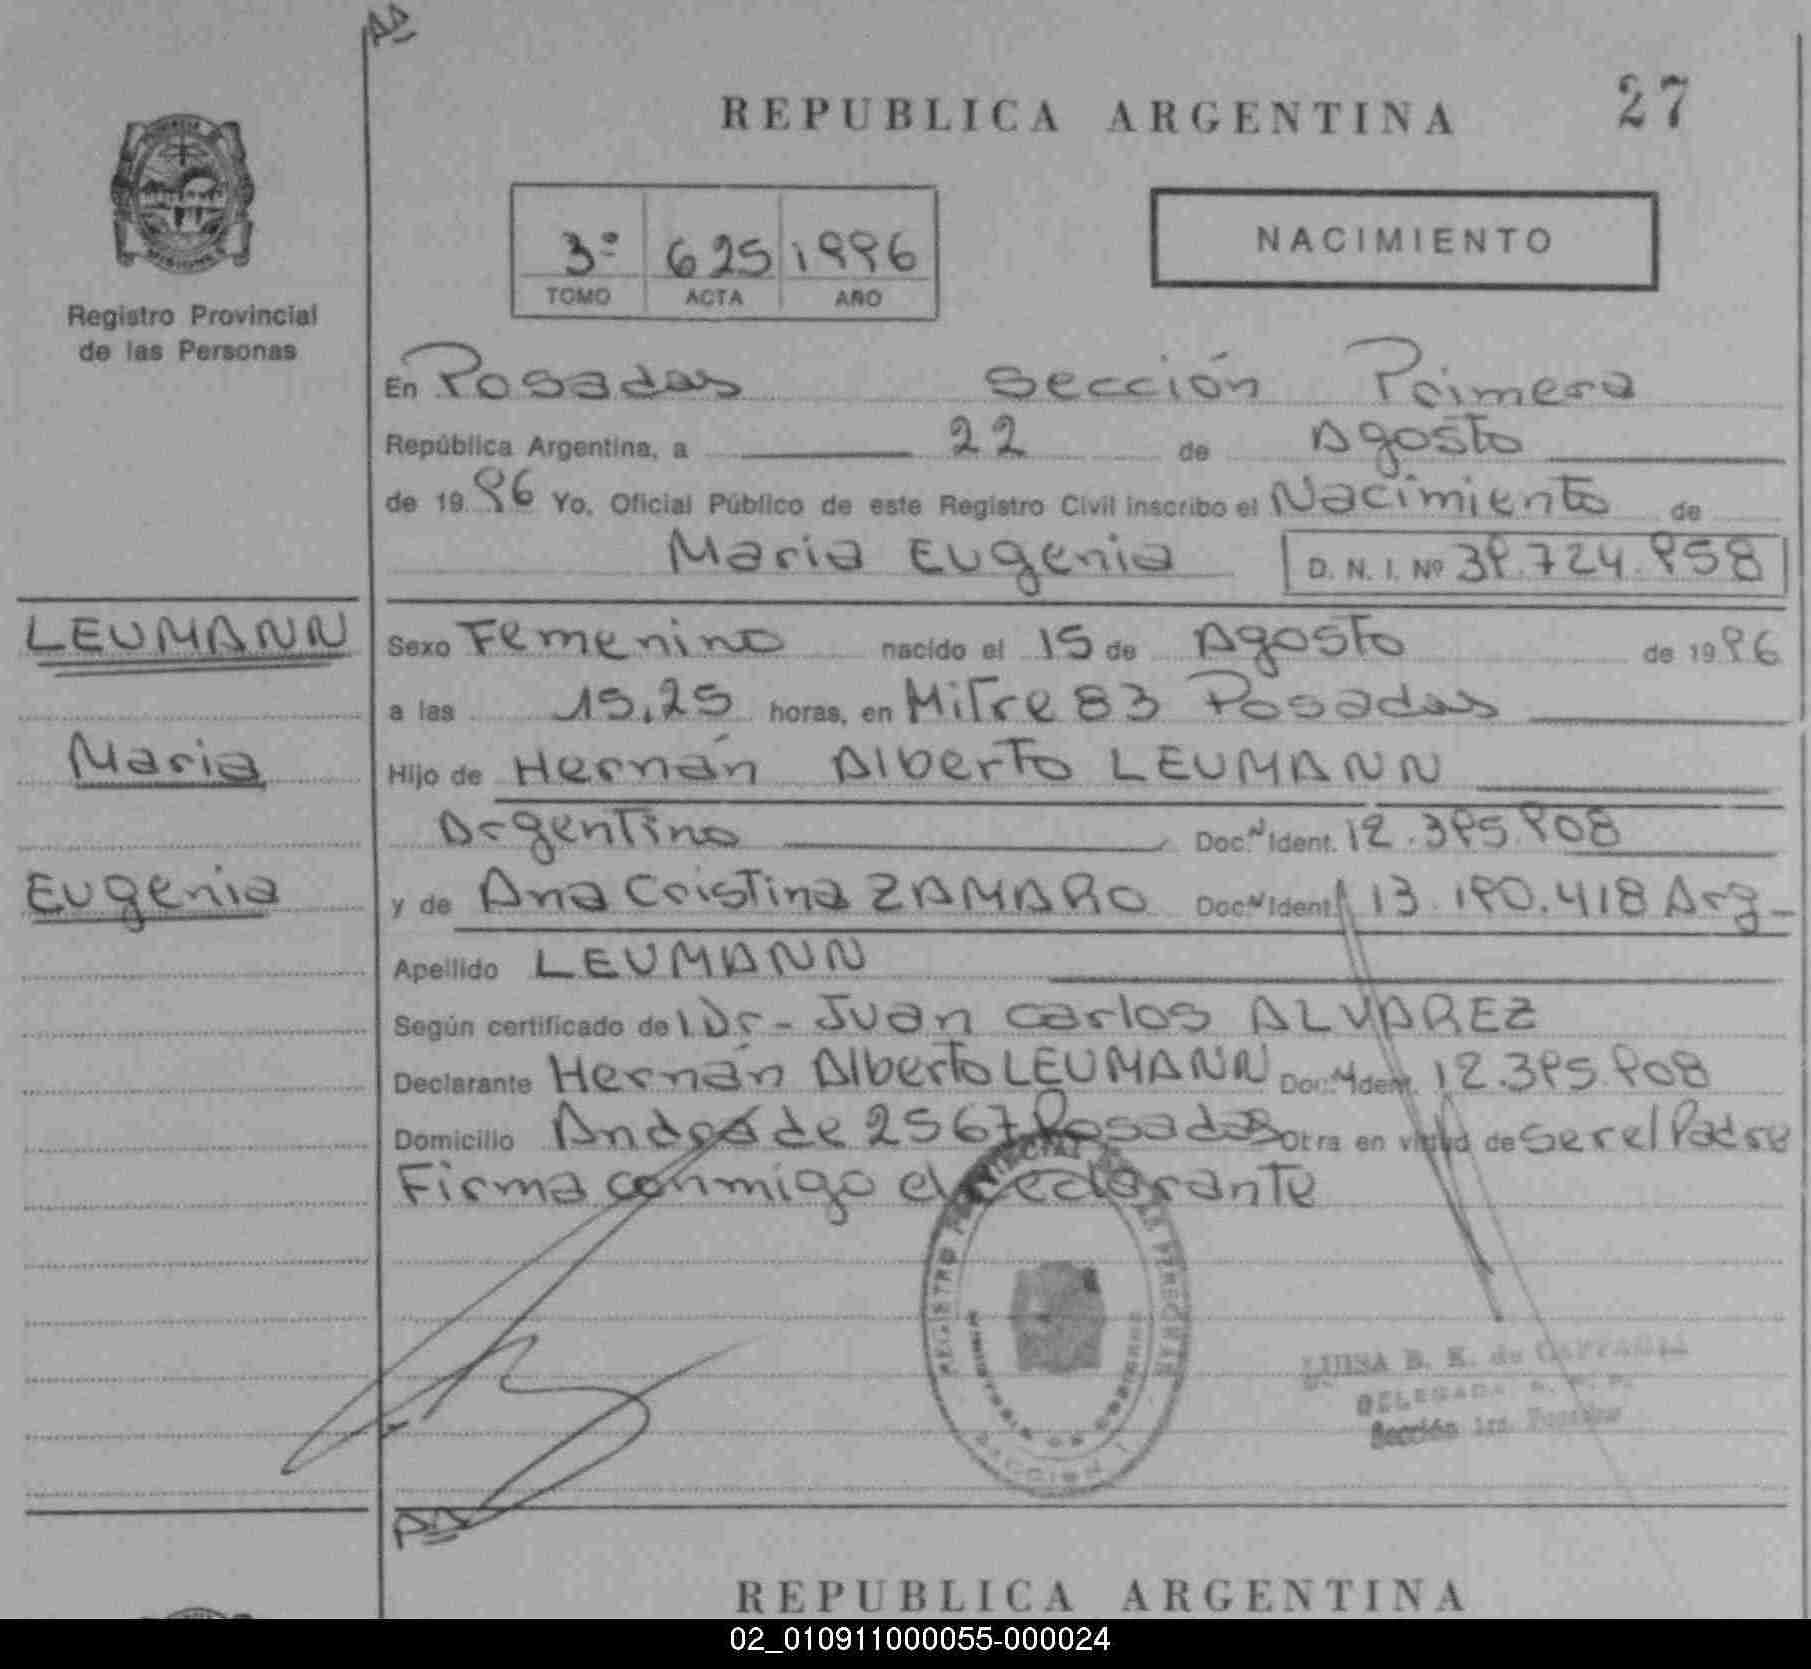 AA
REPUBLICA ARGENTINA
27
3º 625 1996
TOMO ACTA AÑO
NACIMIENTO
Registro Provincial
de las Personas
En Posadas Sección Primera
República Argentina, a 22 de Agosto
de 1996 Yo, Oficial Público de este Registro Civil inscribo el Nacimiento de
Maria Eugenia D. N. I. Nº 39.724.958
LEUMANN
Maria
Eugenia
Sexo Femenino nacido el 15 de Agosto de 1996
a las 15,25 horas, en Mitre 83 Posadas
Hijo de Hernán Alberto LEUMANN
Argentino Doc. N Ident. 12.395.908
y de Ana Cristina ZAMARO Doc. N Ident. 13.190.418 Arg-
Apellido LEUMANN
Según certificado del Dr- Juan Carlos ALVAREZ
Declarante Hernán Alberto LEUMANN Doc. N Ident. 12.395.908
Domicilio Andrade 2567 Posadas Obra en virtud de ser el Padre
Firma conmigo el declarante
REGISTRO PROVINCIAL DE LAS PERSONAS
MINISTERIO DE GOBIERNO
SECCION 1
LUISA B. K. de
DELEGADA R. P. P.
Sección 1ra. Posadas
AA
REPUBLICA ARGENTINA
02_010911000055-000024